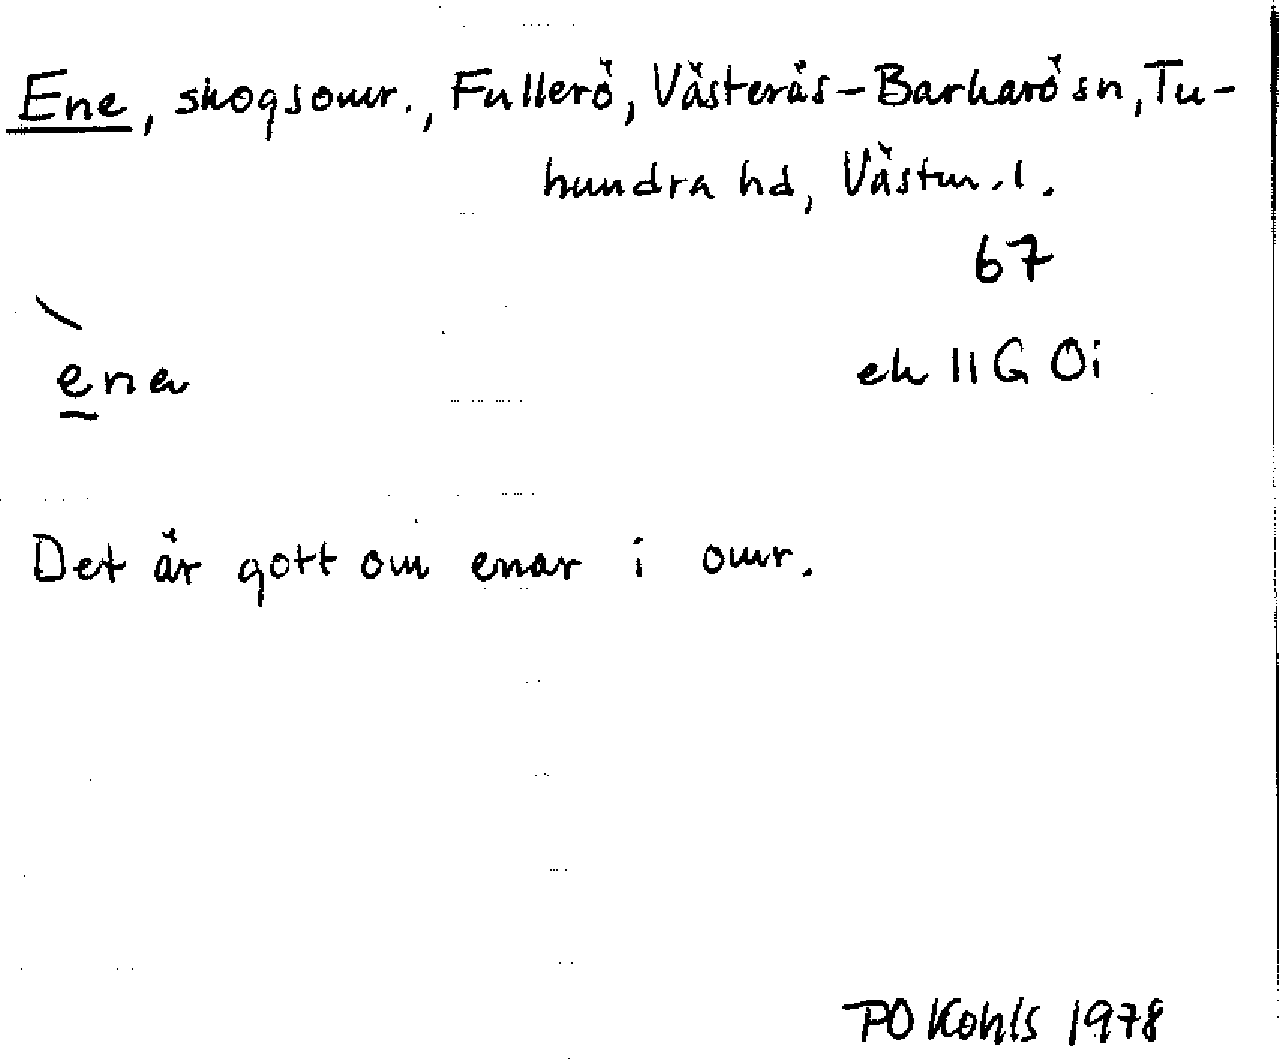 Ene, skogsomr., Fullerö, Västerås-Barkarö sn, Tu-
hundra hd, Västm.l.
67
ena
ek 11G 0i
Det är gott om enar i omr.
PO Kohls 1978